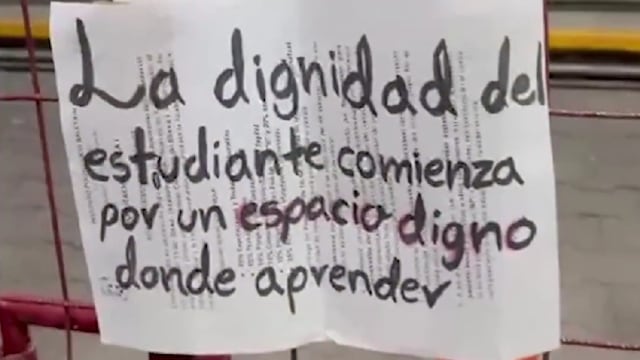 La dignidad del
estudiante comienza
por un espacio digno
donde aprender